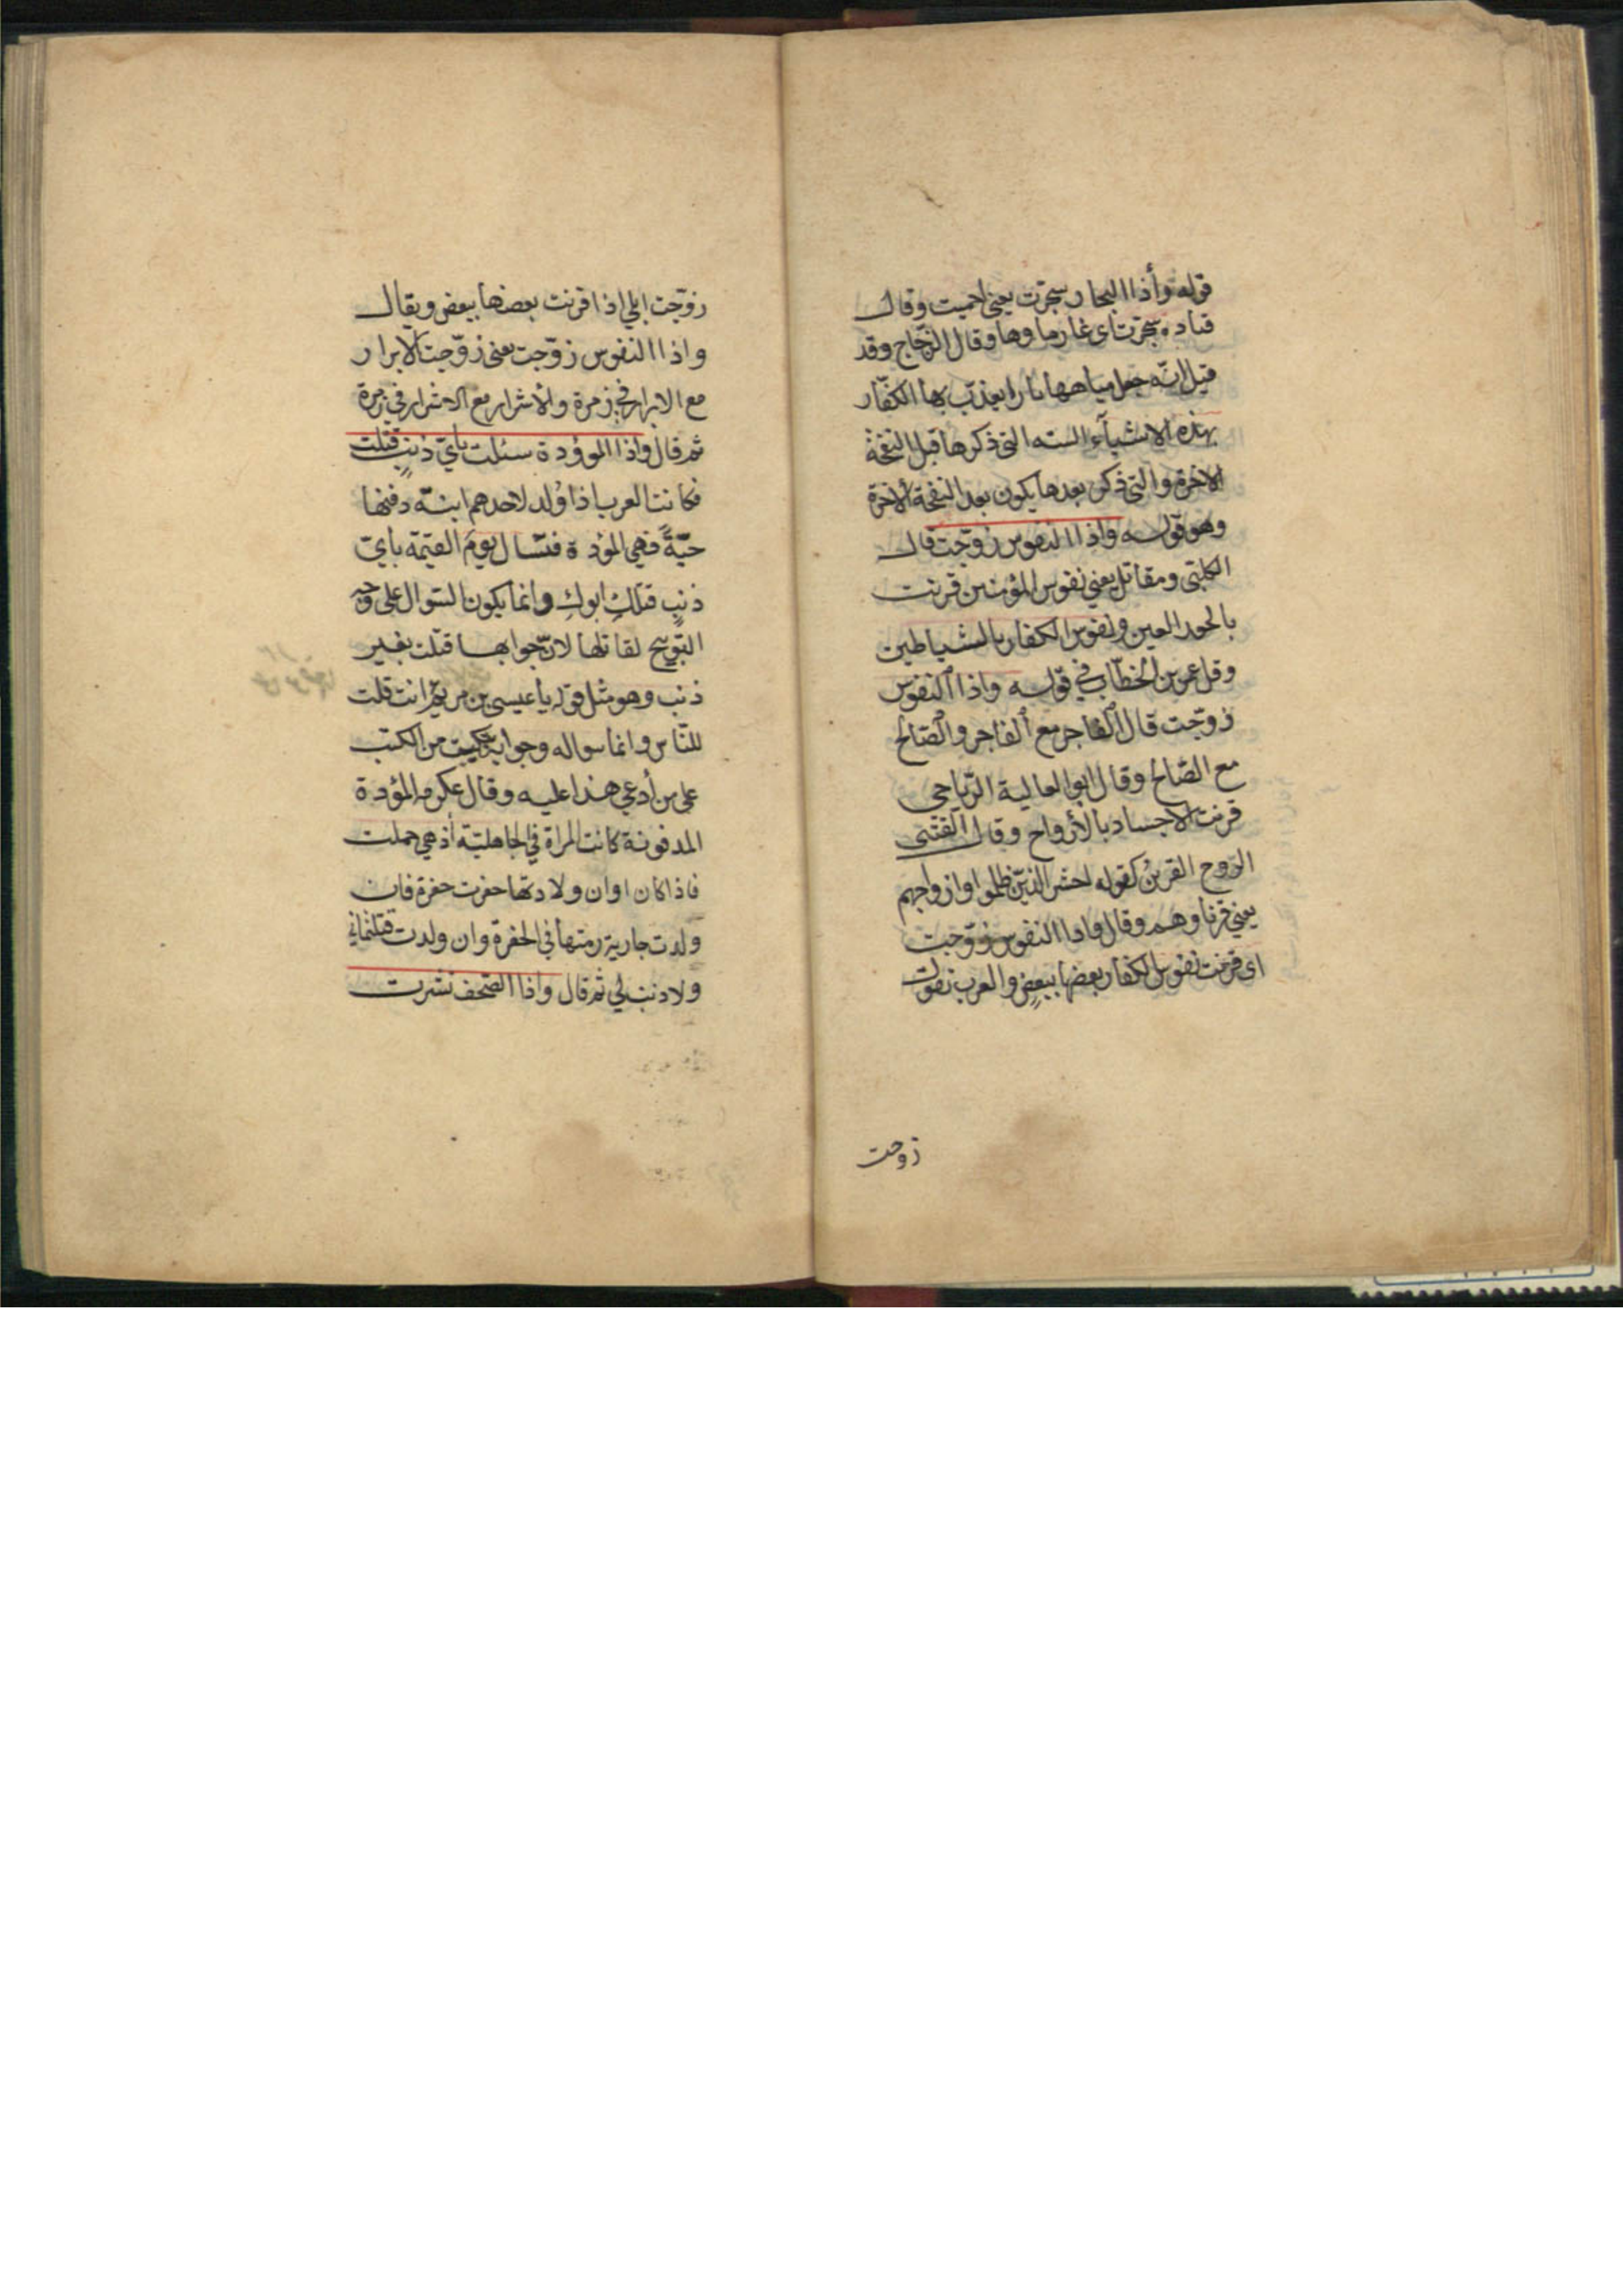 قوله وأذا البحار سجرت يعني احميت وقال
قتاده سجرت اى غار ماوها وقال الزجاج وقد
قيل انّه جعل مياهها نارا يعذب بها الكفّار
بهذه الاشيآء السته التى ذكرها قبل النفخة
الاخرة والتى ذكر بعدها يكون بعد النفخة الأخرة
وهو قوله واذا النفوس زوّجت قال
الكلبى ومقاتل يعني نفوس المؤمنين قرنت
بالحور العين ونفوس الكفار بالشياطين
وقل عمر بن الخطّاب في قوله واذا النفوس
زوجت قال الفاجر مع الفاجر والصّالح
مع الصّالح وقال ابو العالية الرّياحى
قرنت الاجساد بالأرواح وقال القتبى
الزوج القرين كقوله احشر الذين ظلموا وازواجهم
يعني قرناوهم وقال واذا النفوس زوّجت
اى قرنت نفوس الكفار بعضها ببعض والعرب تقول
زوجت
زوّجت ابلي اذا قرنت بعضها ببعض ويقال
واذا النفوس زوّجت يعنى زوّجت الابرار
مع الابرار في زمرة والأشرار مع الاشرار في زمرة
ثم قال واذا الموؤدة سئلت بأيّ ذنب قتلت
فكانت العرب اذا وُلد لاحدهم ابنته دفنها
حيّةً فهي المؤدة فتسّال يومَ القيمة بايّ
ذنبٍ قتلكِ ابوكِ وانما يكون السّوال على وجه
التّوبيخ لقاتلها لانّ جوابها قتلت بغير
ذنب وهو مثل قوله يا عيسى بن مريم انت قلت
للنّاس وانما سواله وجوابه من الكتب
على من أدعي هذا عليه وقال عكرمه المؤدة
المدفونة كانت المراة في الجاهليّة أذ هي حملت
فاذا كان اوان ولادتها حفرت حفرة فان
ولدت جارية رمتها في الحفرة وان ولدت
ولا ذنب لي ثم قال واذا الصّحف نشرت